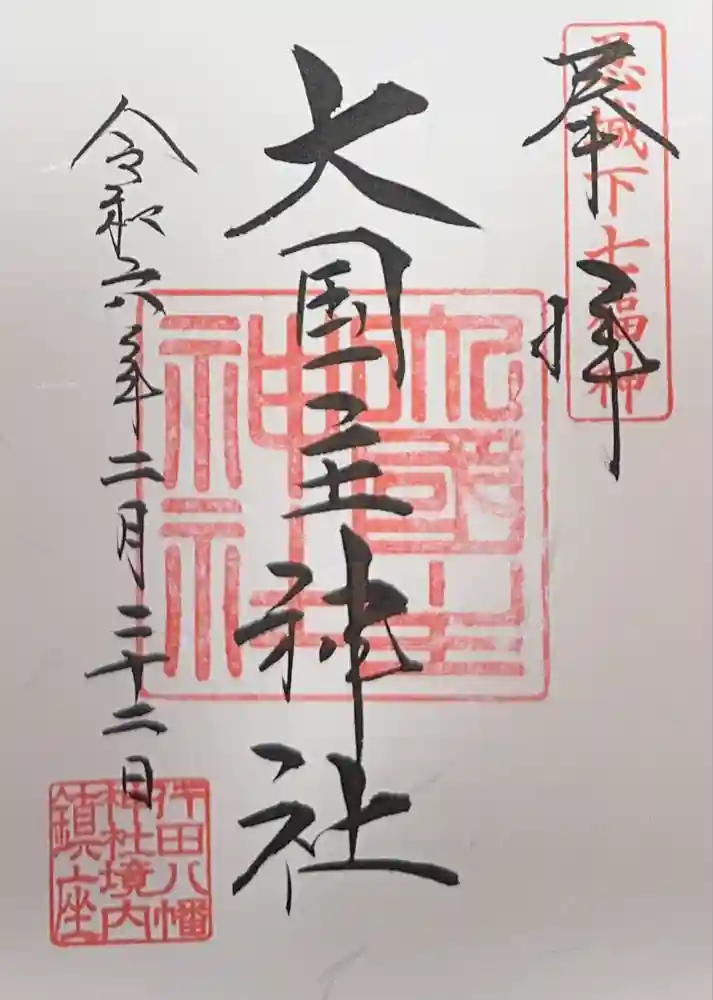 奉拝
忍城下七福神
大国主神社
大國主
神社
令和六年二月二十二日
持田八幡
神社境内
鎮座